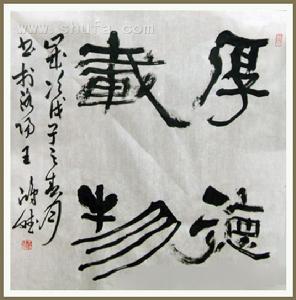 www.shufa.com
厚德
載物
歲次戊子之春月
书於洛阳王